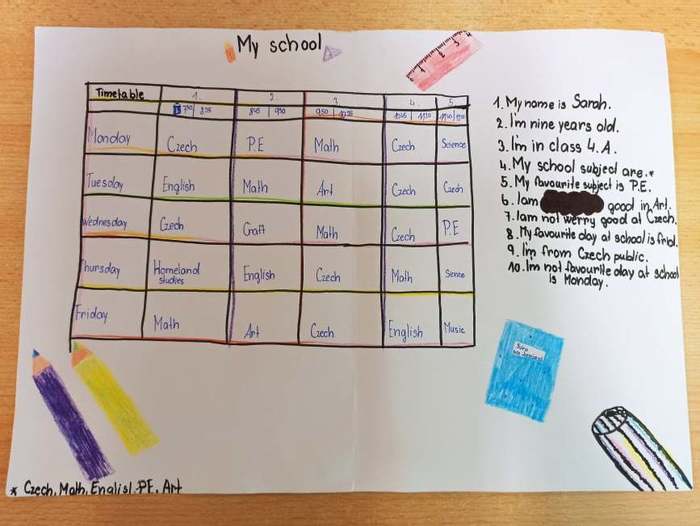 My school
Timetable 1 2 3 4 5
Monday Czech P.E Math Czech Science
Tuesday English Math Art Czech Czech
Wednesday Czech Craft Math Czech P.E
Thursday Homeland studies English Czech Math
Friday Math Art Czech English Music
1. My name is Sarah.
2. I'm nine years old.
3. I'm in class 4.A.
4. My school subject are.*
5. My favourite subject is P.E.
6. I am good in Art.
7. I am not werry good at Czech.
8. My favourite day at school is
9. I'm from Czech public.
10. Im not favourite day at school
is Monday.
* Czech, Math, Englisl, P.E, Art